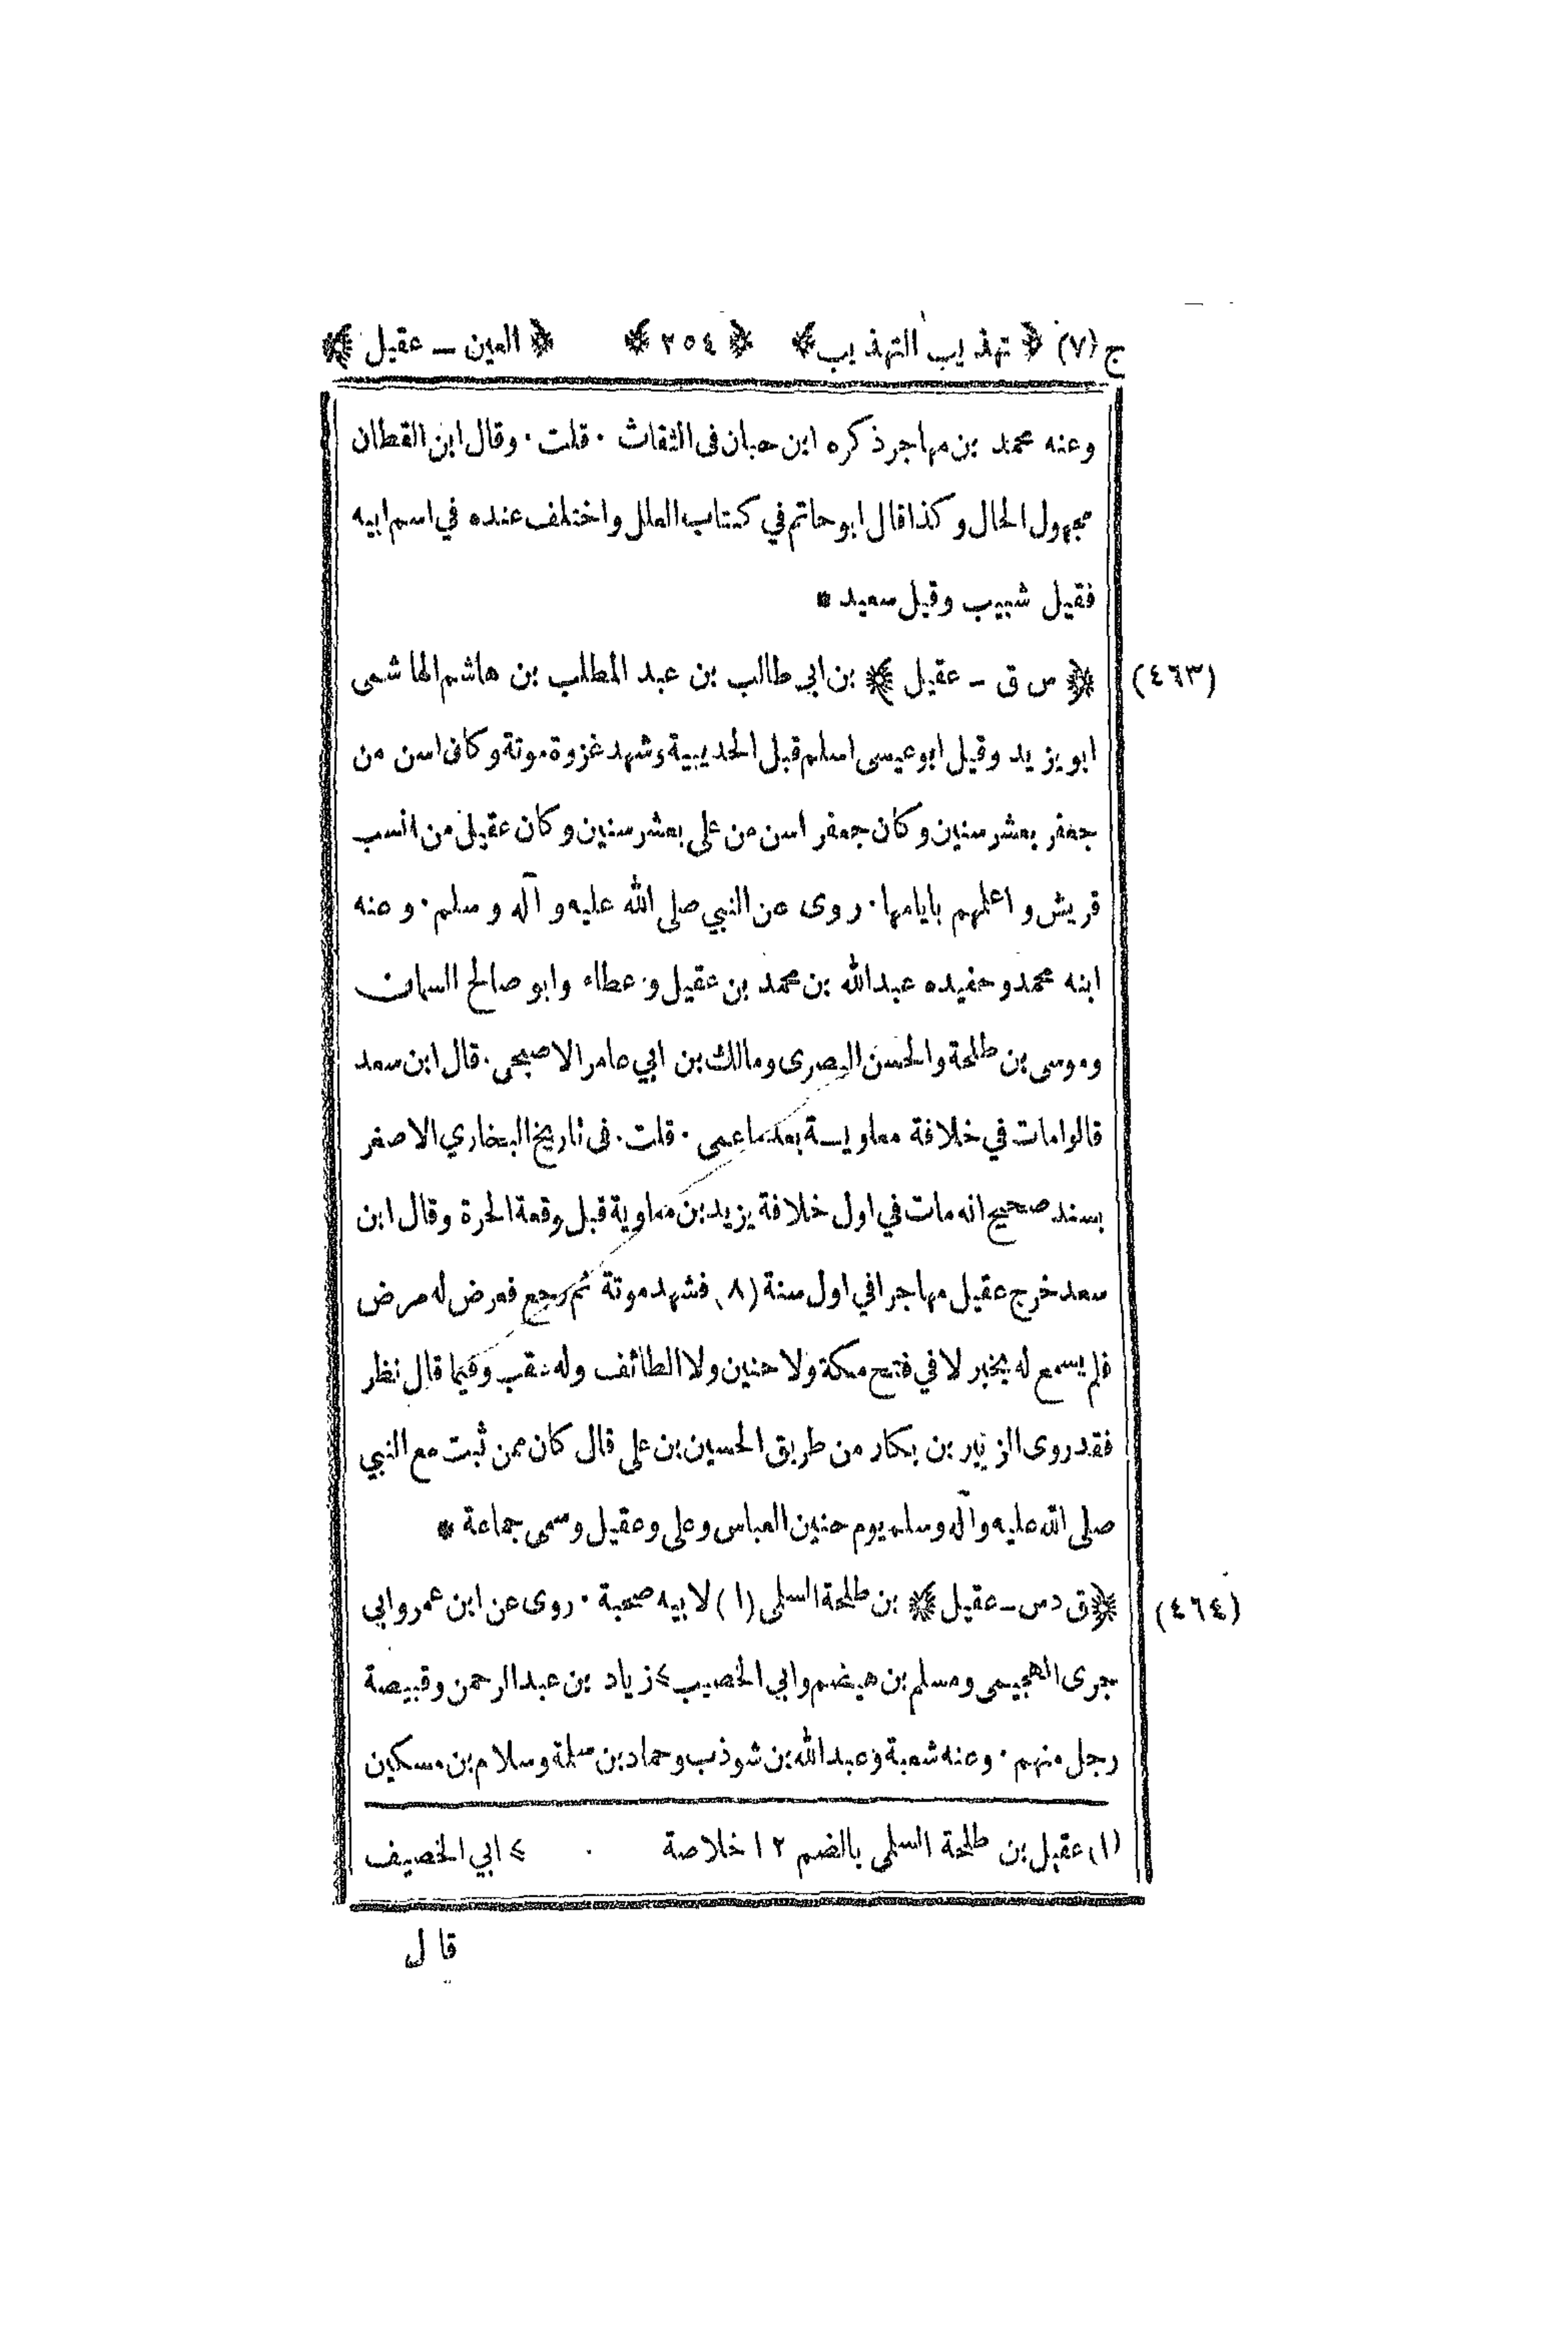 ج (٧) ﴿ تهذيب التهذيب ﴾ ﴿ ٢٥٤ ﴾ ﴿ العين ــ عقيل ﴾
وعنه محمد بن مهاجر ذكره ابن حبان فى الثقات ٠ قلت ٠ وقال ابن القطان
مجهول الحال وكذا قال ابو حاتم في كتاب العلل واختلف عنده في اسم ابيه
فقيل شبيب وقيل سعيد *
(٤٦٣) ﴿ س ق ــ عقيل ﴾ بن ابي طالب بن عبد المطلب بن هاشم الهاشمى
ابو يزيد وقيل ابو عيسى اسلم قبل الحديبية وشهد غزوة موتة وكان اسن من
جعفر بعشر سنين وكان جعفر اسن من على بعشر سنين وكان عقيل من انسب
قريش و اعلمهم بايامها ٠ روى عن النبي صلى الله عليه و آله و سلم ٠ و عنه
ابنه محمد وحفيده عبدالله بن محمد بن عقيل و عطاء وابو صالح السمان
وموسى بن طلحة والحسن البصرى ومالك بن ابي عامر الاصبحى ٠ قال ابن سعد
قالوا مات في خلافة معاوية بعد ما عمى ٠ قلت ٠ فى تاريخ البخاري الاصغر
بسند صحيح انه مات في اول خلافة يزيد بن معاوية قبل وقعة الحرة وقال ابن
سعد خرج عقيل مهاجرا في اول سنة (٨) فشهد موتة ثم رجع فعرض له مرض
فلم يسمع له بخبر لا في فتح مكة ولا حنين ولا الطائف وله عقب وفيما قال نظر
فقد روى الزبير بن بكار من طريق الحسين بن على قال كان ممن ثبت مع النبي
صلى الله عليه وآله وسلم يوم حنين العباس وعلى وعقيل وسمى جماعة *
(٤٦٤) ﴿ ق د س ــ عقيل ﴾ بن طلحة السلمى (١) لابيه صحبة ٠ روى عن ابن عمر وابي
جرى الهجيمى ومسلم بن هيضم وابي الخصيب > زياد بن عبد الرحمن وقبيصة
رجل منهم ٠ وعنه شعبة وعبد الله بن شوذب وحماد بن سلمة وسلام بن مسكين
(١) عقيل بن طلحة السلمى بالضم ١٢ خلاصة > ابي الخصيف
قال